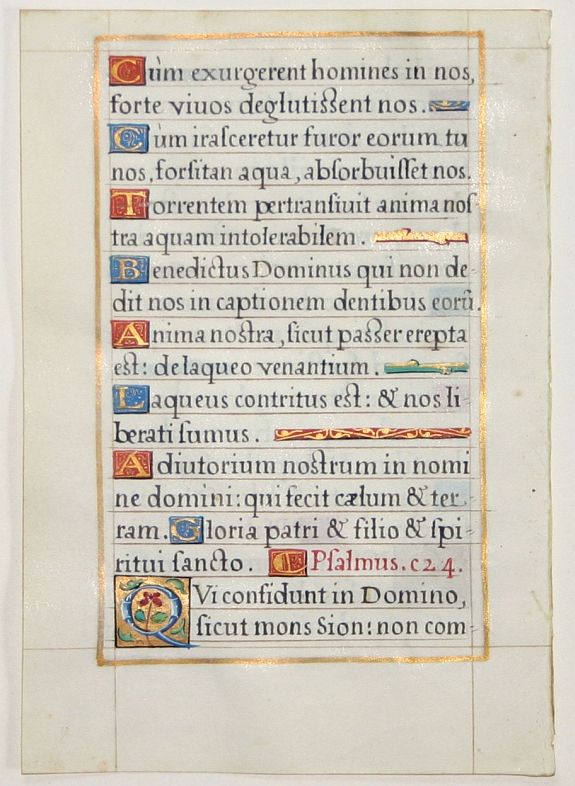 Cùm exurgerent homines in nos,
forte viuos deglutissent nos.
Cùm irasceretur furor eorum tu
nos, forsitan aqua, absorbuisset nos.
Torrentem pertransiuit anima nos
tra aquam intolerabilem.
Benedictus Dominus qui non de-
dit nos in captionem dentibus eorū.
Anima nostra, sicut passer erepta
est: de laqueo venantium.
Laqueus contritus est: & nos li-
berati sumus.
Adiutorium nostrum in nomi
ne domini: qui fecit cælum & ter-
ram. Gloria patri & filio & spi-
ritui sancto. Psalmus. c24.
QVi confidunt in Domino,
sicut mons Sion: non com-